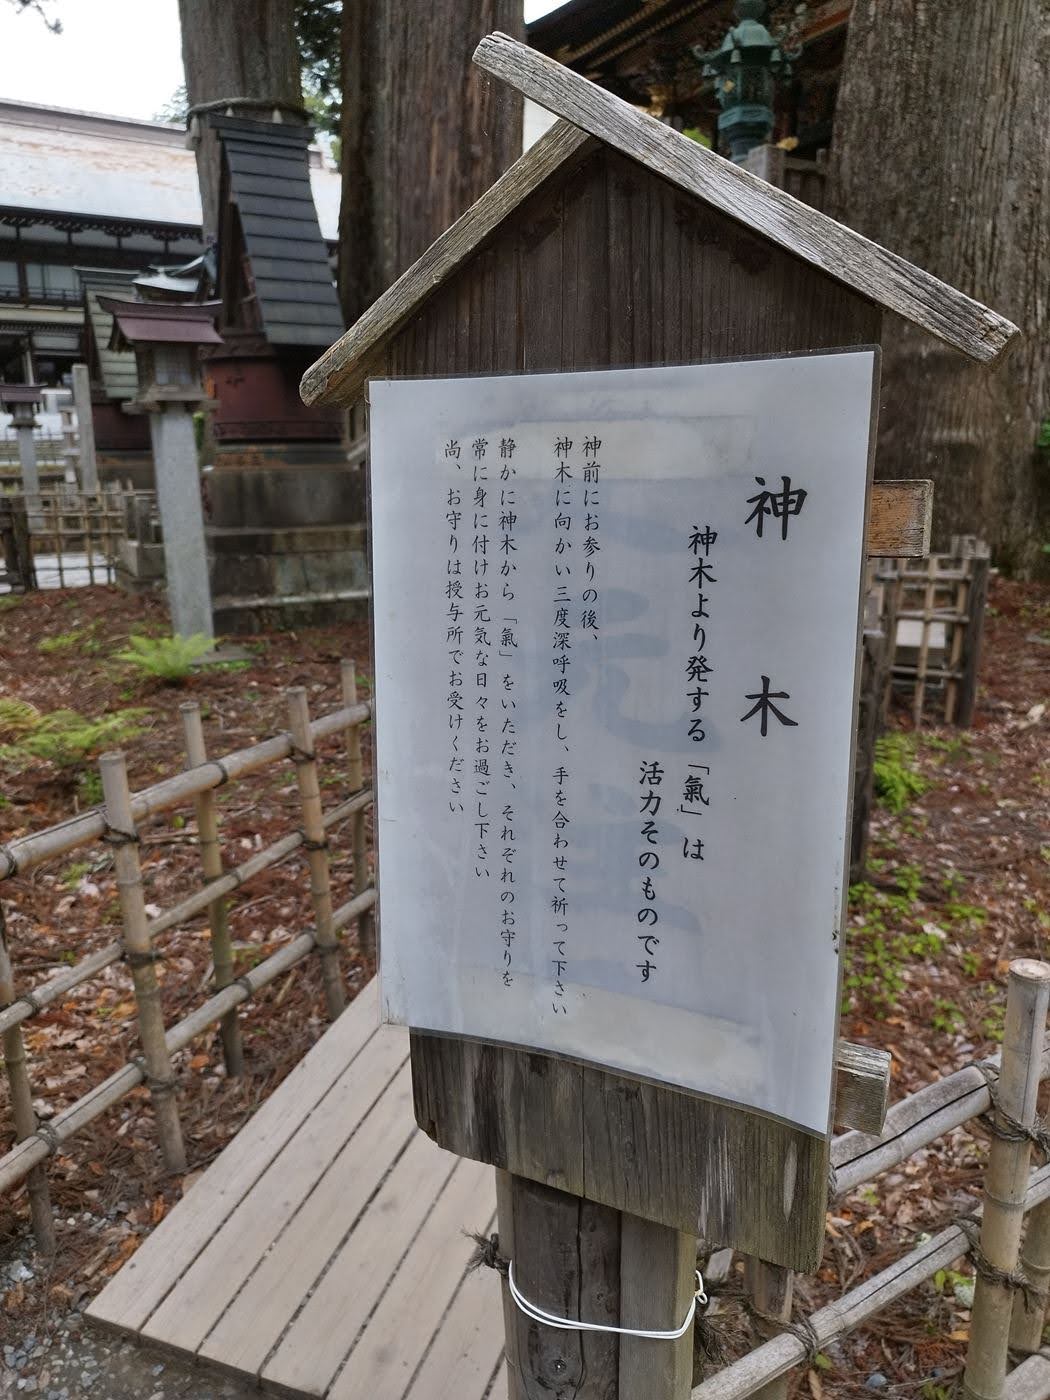 神木
神木より発する「氣」は
活力そのものです
神前にお参りの後、
神木に向かい三度深呼吸をし、手を合わせて祈って下さい
静かに神木から「氣」をいただき、それぞれのお守りを
常に身に付けお元気な日々をお過ごし下さい
尚、お守りは授与所でお受けください